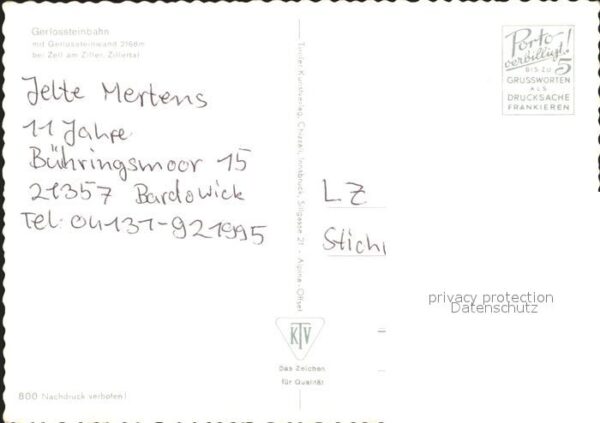 Gerlossteinbahn
mit Gerlossteinwand 2166m
bei Zell am Ziller, Zillertal
Jelte Mertens
11 Jahre
Bühringsmoor 15
21357 Bardowick
Tel: 04131-921995
Tiroler Kunstverlag, Chizzali, Innsbruck, Sillgasse 21 - Alpina-Offset
Porto-
verbilligt!
BIS ZU 5
GRUSSWORTEN
ALS
DRUCKSACHE
FRANKIEREN
LZ
Stich
privacy protection
Datenschutz
KTV
Das Zeichen
für Qualität
800 Nachdruck verboten!